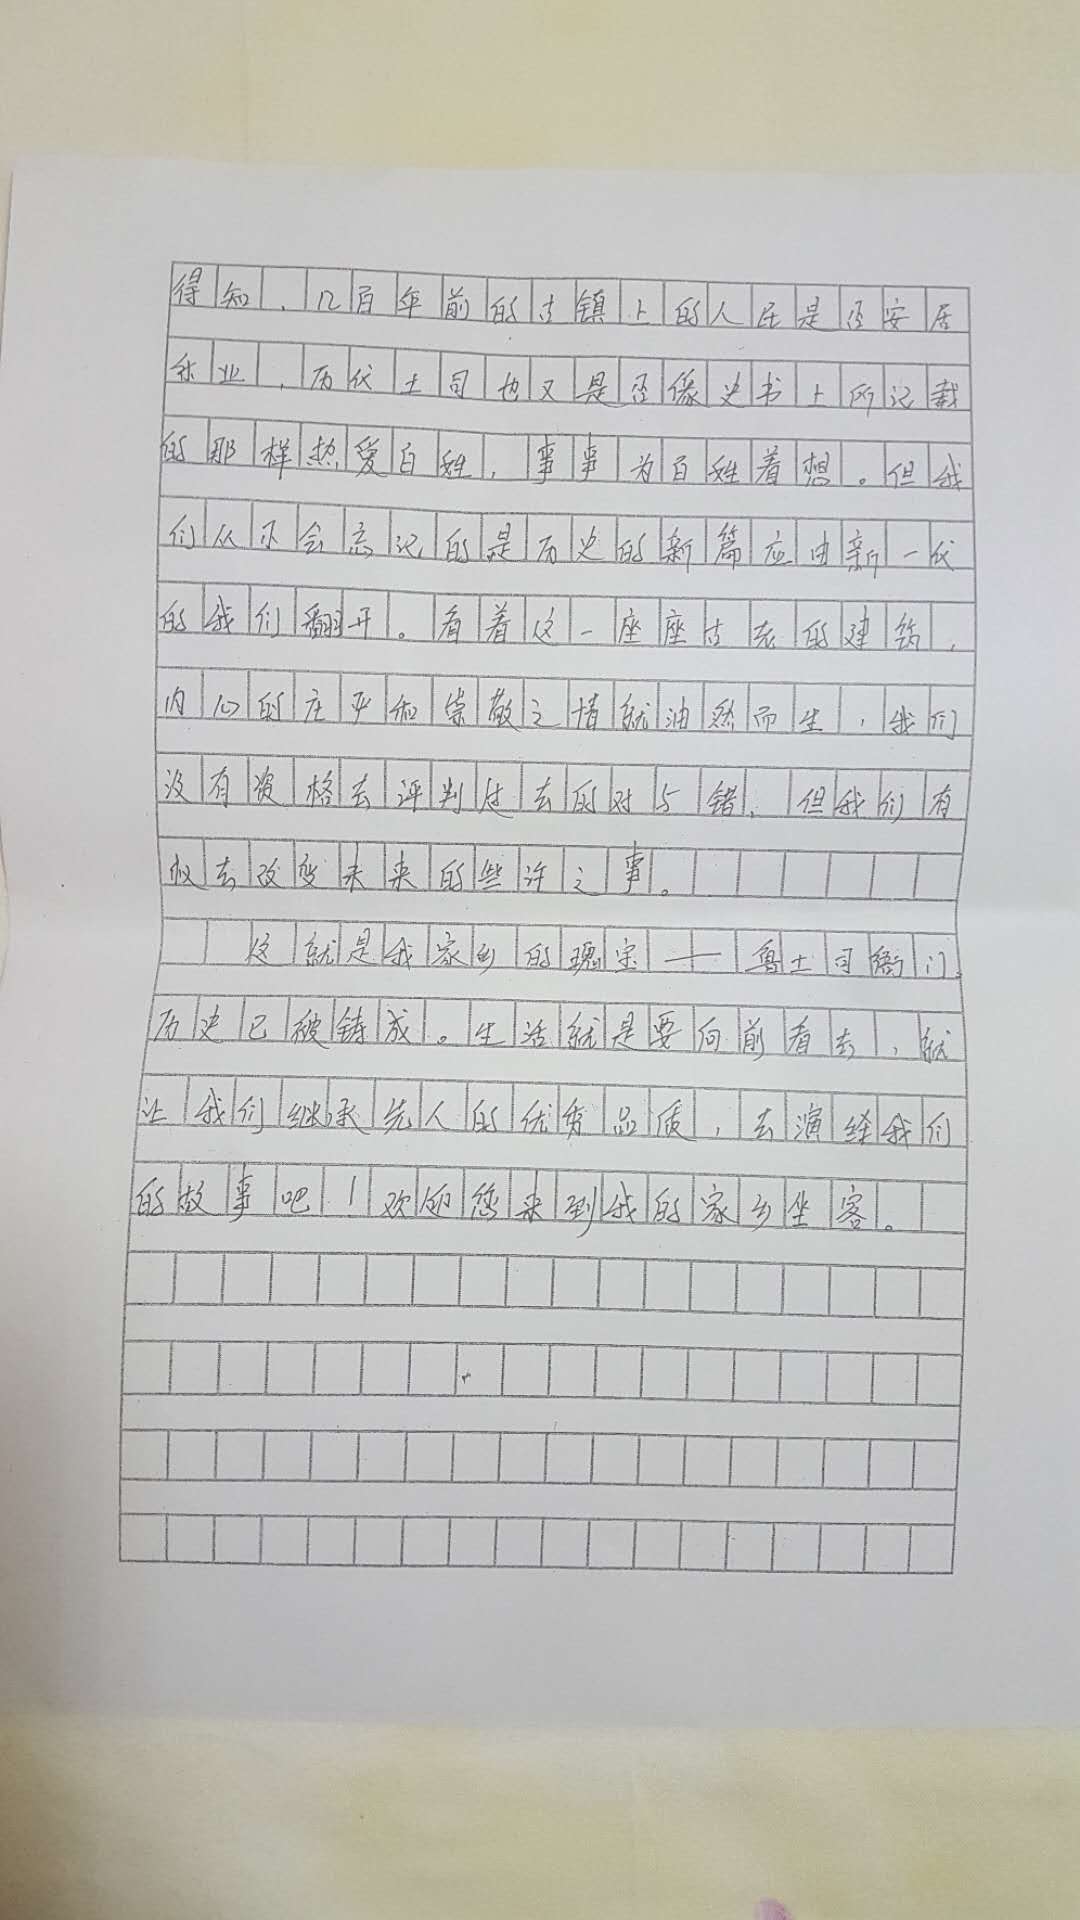 得知，几百年前的古镇上的人民是否安居
乐业，历代土司也又是否像史书上所记载
的那样热爱百姓，事事为百姓着想。但我
们从不会忘记的是历史的新篇应由新一代
的我们翻开。看着这一座座古老的建筑，
内心的庄严和崇敬之情就油然而生，我们
没有资格去评判过去的对与错，但我们有
权去改变未来的些许之事。
这就是我家乡的瑰宝——鲁土司衙门，
历史已被铸成。生活就是要向前看去，就
让我们继承先人的优秀品质，去演绎我们
的故事吧！欢迎您来到我的家乡坐客。